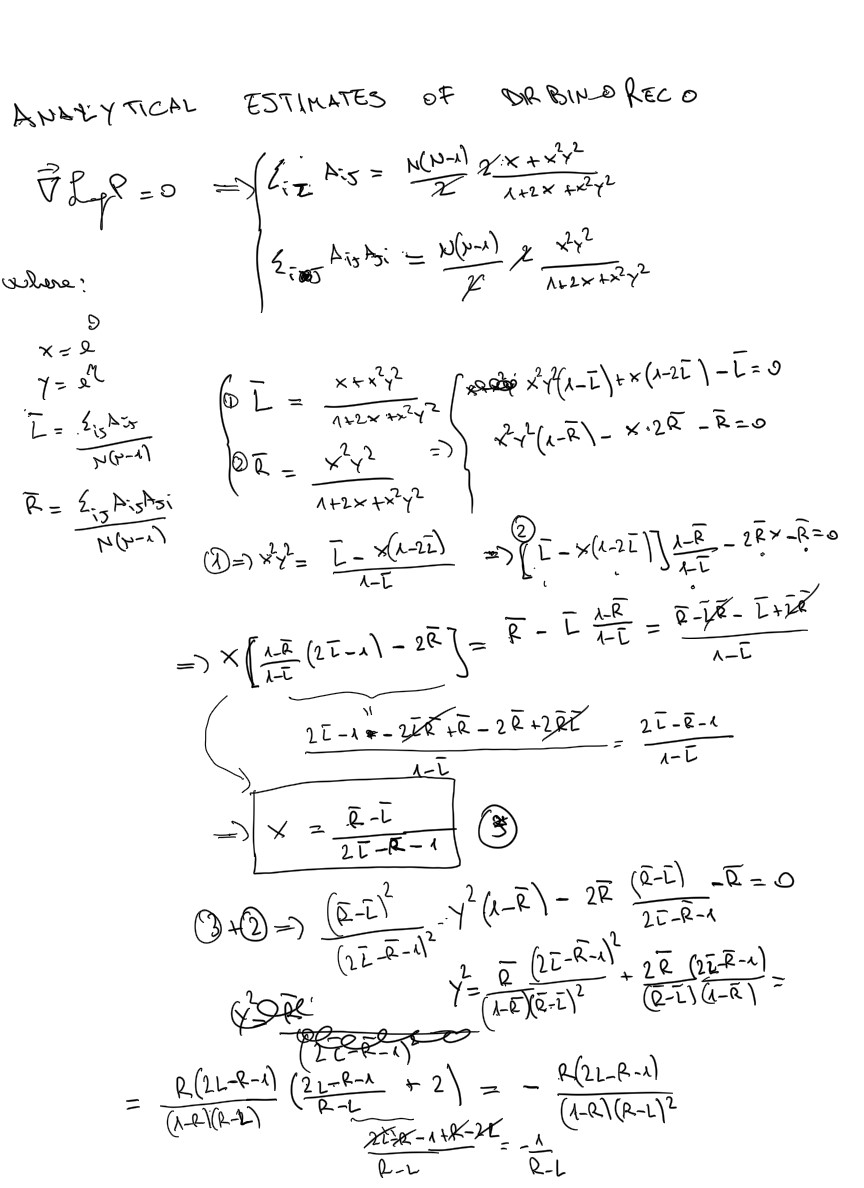 ANALYTICAL ESTIMATES OF DRBINORECO
∇⃗ Log P = 0 ⇒ { Σ_ij A_ij = N(N-1)/2 2 · (x + x²y²)/(1+2x+x²y²)
Σ_ij A_ij A_ji = N(N-1)/2 2 (x²y²)/(1+2x+x²y²)
where:
x = e^θ
y = e^η
L̄ = Σ_ij A_ij / N(N-1)
R̄ = Σ_ij A_ij A_ji / N(N-1)
{ ① L̄ = (x+x²y²)/(1+2x+x²y²) ⇒ { x²y²(1-L̄)+x(1-2L̄) - L̄ = 0
② R̄ = (x²y²)/(1+2x+x²y²) x²y²(1-R̄) - x·2R̄ - R̄ = 0
① ⇒ x²y² = (L̄ - x(1-2L̄))/(1-L̄) ⇒ ② [L̄ - x(1-2L̄)] (1-R̄)/(1-L̄) - 2R̄x - R̄ = 0
⇒ x[(1-R̄)/(1-L̄) (2L̄-1) - 2R̄] = R̄ - L̄ (1-R̄)/(1-L̄) = (R̄ - L̄R̄ - L̄ + L̄R̄)/(1-L̄)
" (2L̄ - 1 - 2L̄R̄ + R̄ - 2R̄ + 2R̄L̄)/(1-L̄) = (2L̄-R̄-1)/(1-L̄)
⇒ x = (R̄-L̄)/(2L̄-R̄-1) ③
③+② ⇒ (R̄-L̄)²/(2L̄-R̄-1)² · y²(1-R̄) - 2R̄ (R̄-L̄)/(2L̄-R̄-1) - R̄ = 0
y² = R̄ (2L̄-R̄-1)²/((1-R̄)(R̄-L̄)²) + 2R̄ (2L̄-R̄-1)/((R̄-L̄)(1-R̄)) =
= R(2L-R-1)/((1-R)(R-L)) ((2L-R-1)/(R-L) + 2) = - R(2L-R-1)/((1-R)(R-L)²)
(2L-R-1+R-2L)/(R-L) = -1/(R-L)